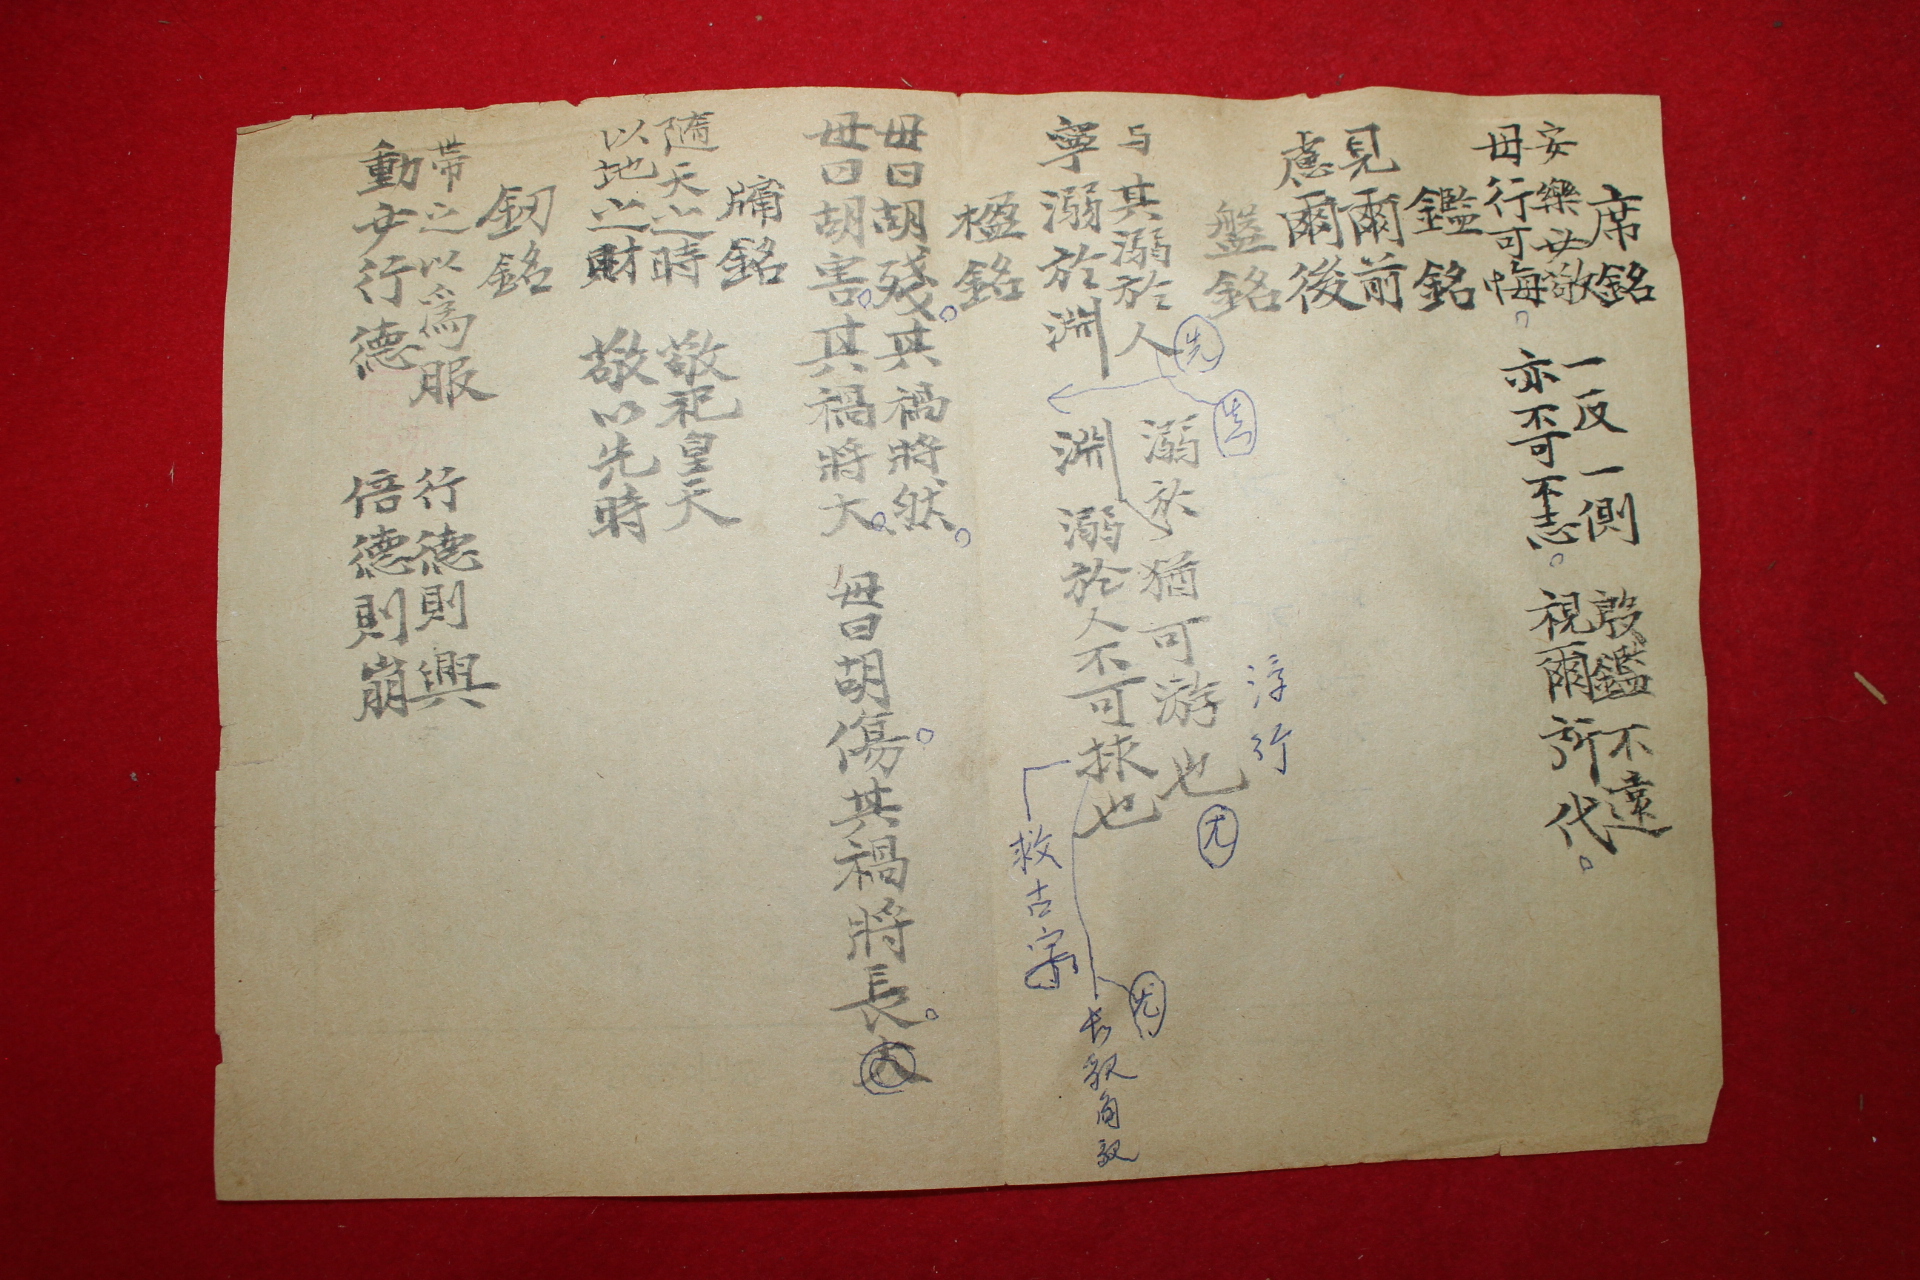 席銘
安樂必敬 一反一側 殷鑑不遠
毋行可悔。 亦不可不志。 視爾所代。
鑑銘
見爾前
慮爾後
盤銘
与其溺於人 溺於 猶可游也
寧溺於淵 淵 溺於人不可救也
先
淳行
尤
救古寫
楹銘
毋曰胡殘。其禍將然。
毋曰胡害。其禍將大。 毋曰胡傷。其禍將長。
牖銘
隨天之時 敬祀皇天
以地之財 敬以先時
劒銘
帶之以為服 行德則興
動必行德 倍德則崩